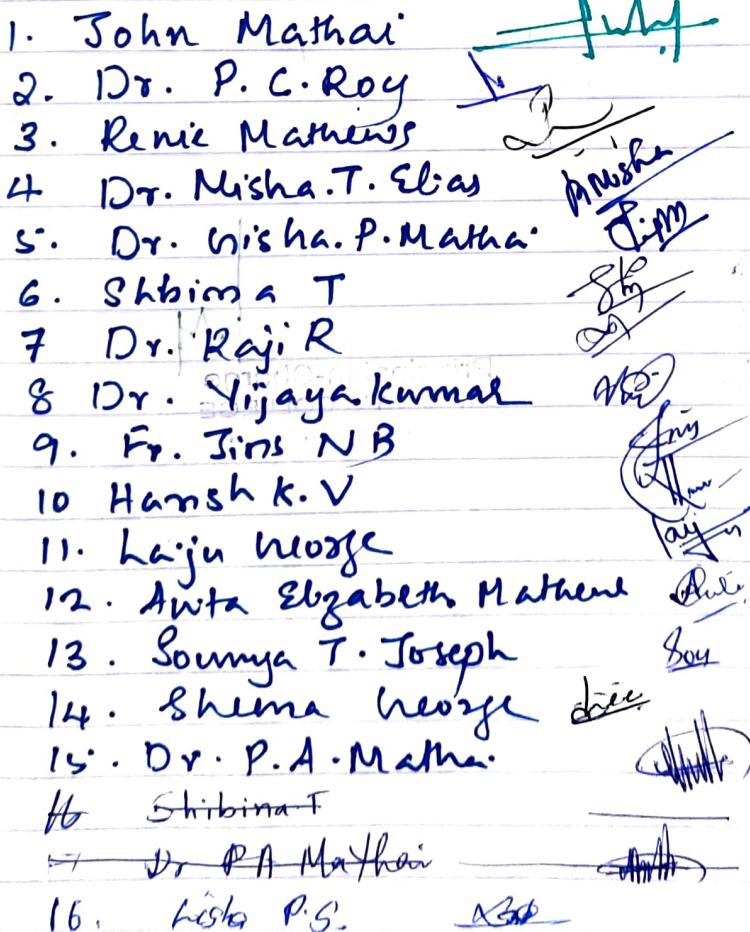 1. John Mathai
2. Dr. P. C. Roy
3. Renie Mathews
4 Dr. Nisha. T. Elias Anisha
5. Dr. Gisha. P. Mathai
6. Shbina T
7 Dr. Raji R
8 Dr. Vijayakumar
9. Fr. Jins N B Jins
10 Harish K. V
11. Laiju George
12. Anita Elizabeth Mathew
13. Soumya T. Joseph Sou
14. Shema George
15. Dr. P. A. Mathai
16 Shibina T
17 Dr P A Mathai
16. Lisha P.S.